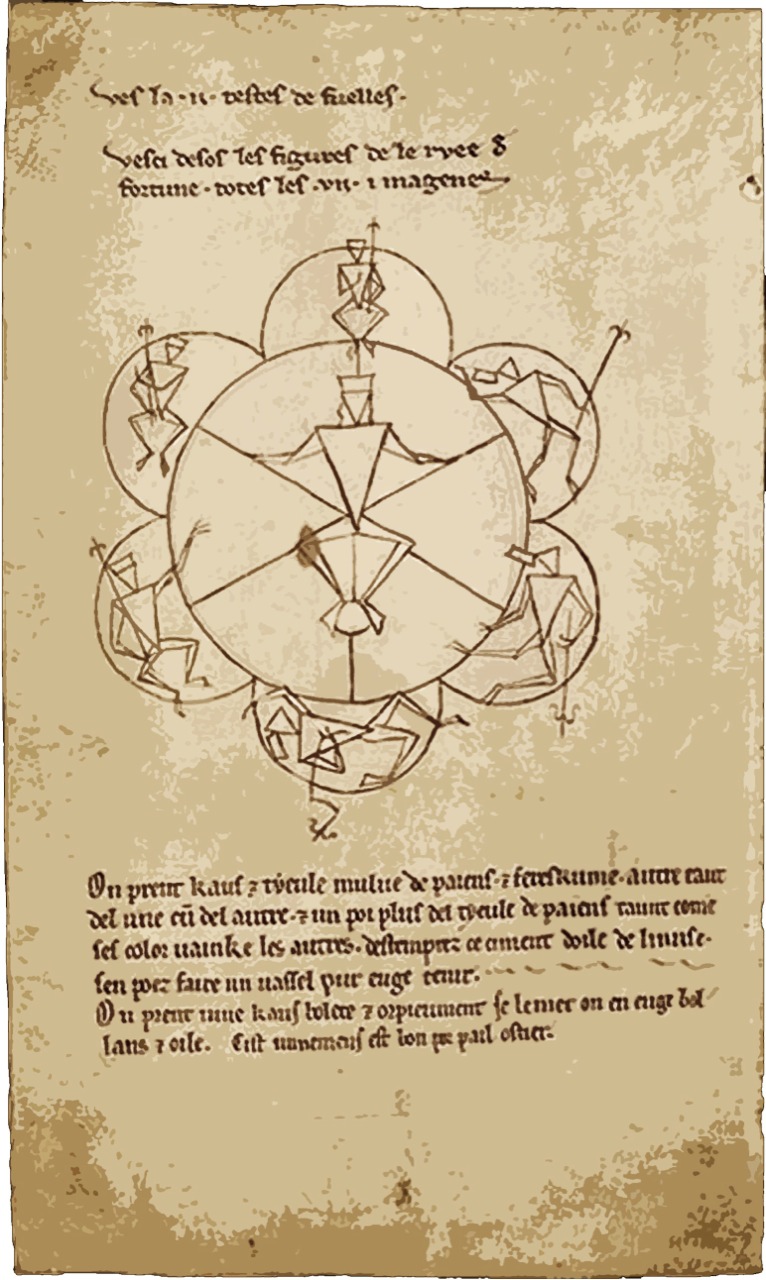 Vesla .ii. testes de fuelles.
Vesci desos les figures de le ruee d
fortune. totes les .vii. imagenes
On prent kaus ⁊ tyeule mulue de paiens. ⁊ autre tant
del une cū del autre. ⁊ un poi plus del tyeule de paiens taunt come
ses color uainke les autres. destemprez ce ciment doile de linuse.
sen poez faire un uassel pur euge tenir.
On prent uiue kaus bolete ⁊ orpieument se le met on en euge bol
lans ⁊ oile. Cist unnemens est bon por pail ostier.